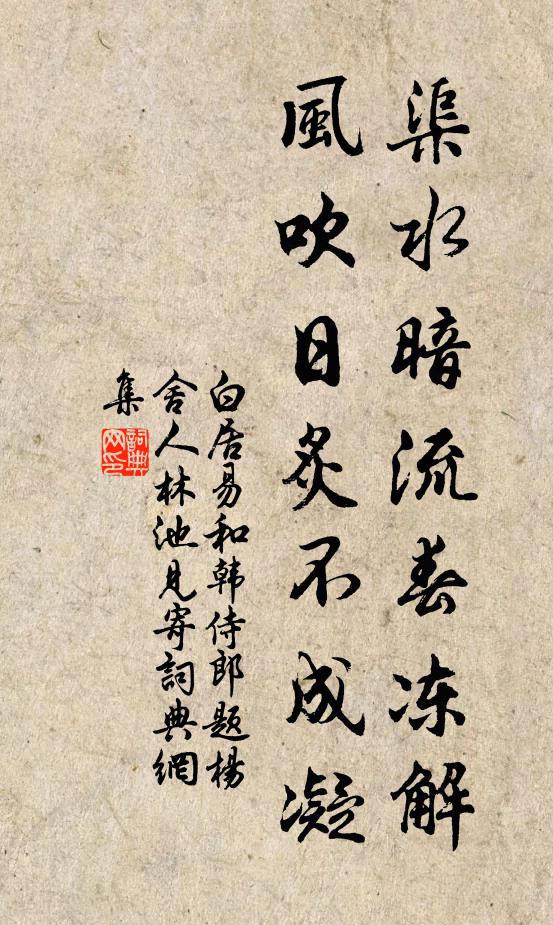 渠水暗流春冻解
風吹日炙不成凝
白居易和韩侍郎题楊
舍人林池見寄詞典網
集
詞典网印